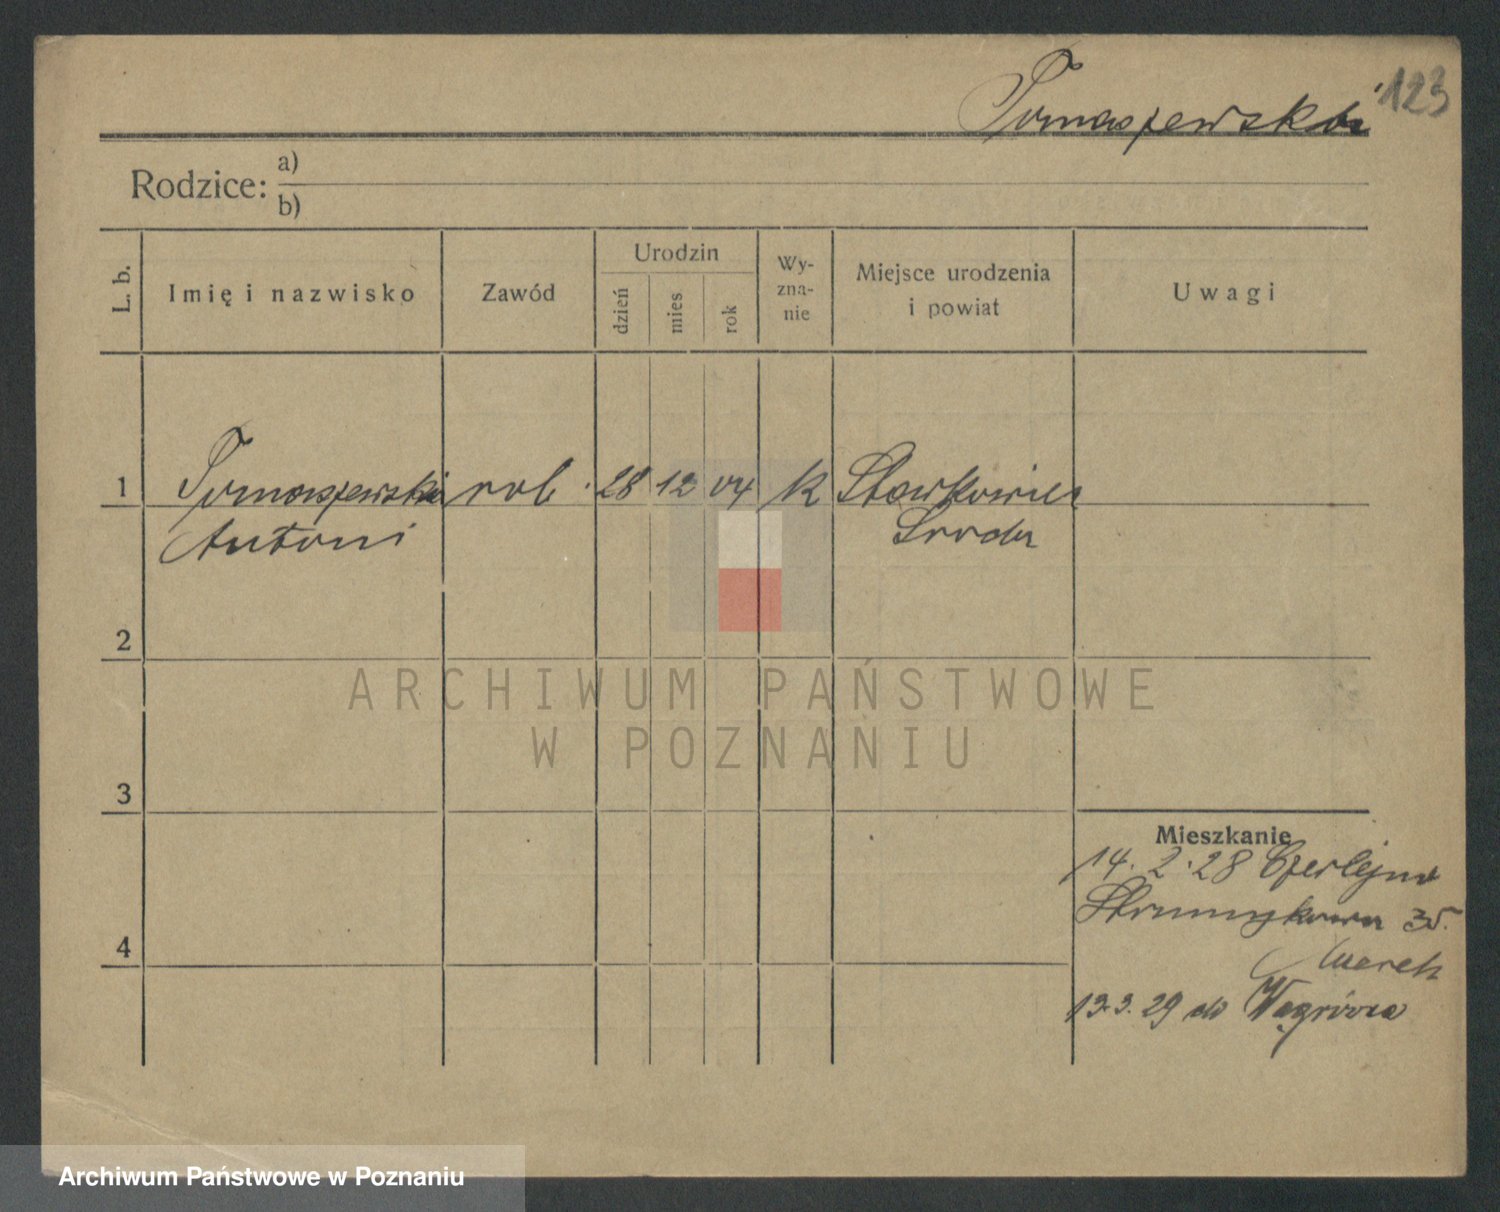 Tomaszewski 123
Rodzice: a)
b)
L. b.
Imię i nazwisko
Zawód
Urodzin
dzień
mies
rok
Wy-
zna-
nie
Miejsce urodzenia
i powiat
Uwagi
1 Tomaszewski rob. 28 12 04 K
Antoni Środa
2
3
4
Mieszkanie
14.2.28 Czerlejno
Strumykowa 35.
Marek
13.3.29 do
ARCHIWUM PAŃSTWOWE
W POZNANIU
Archiwum Państwowe w Poznaniu